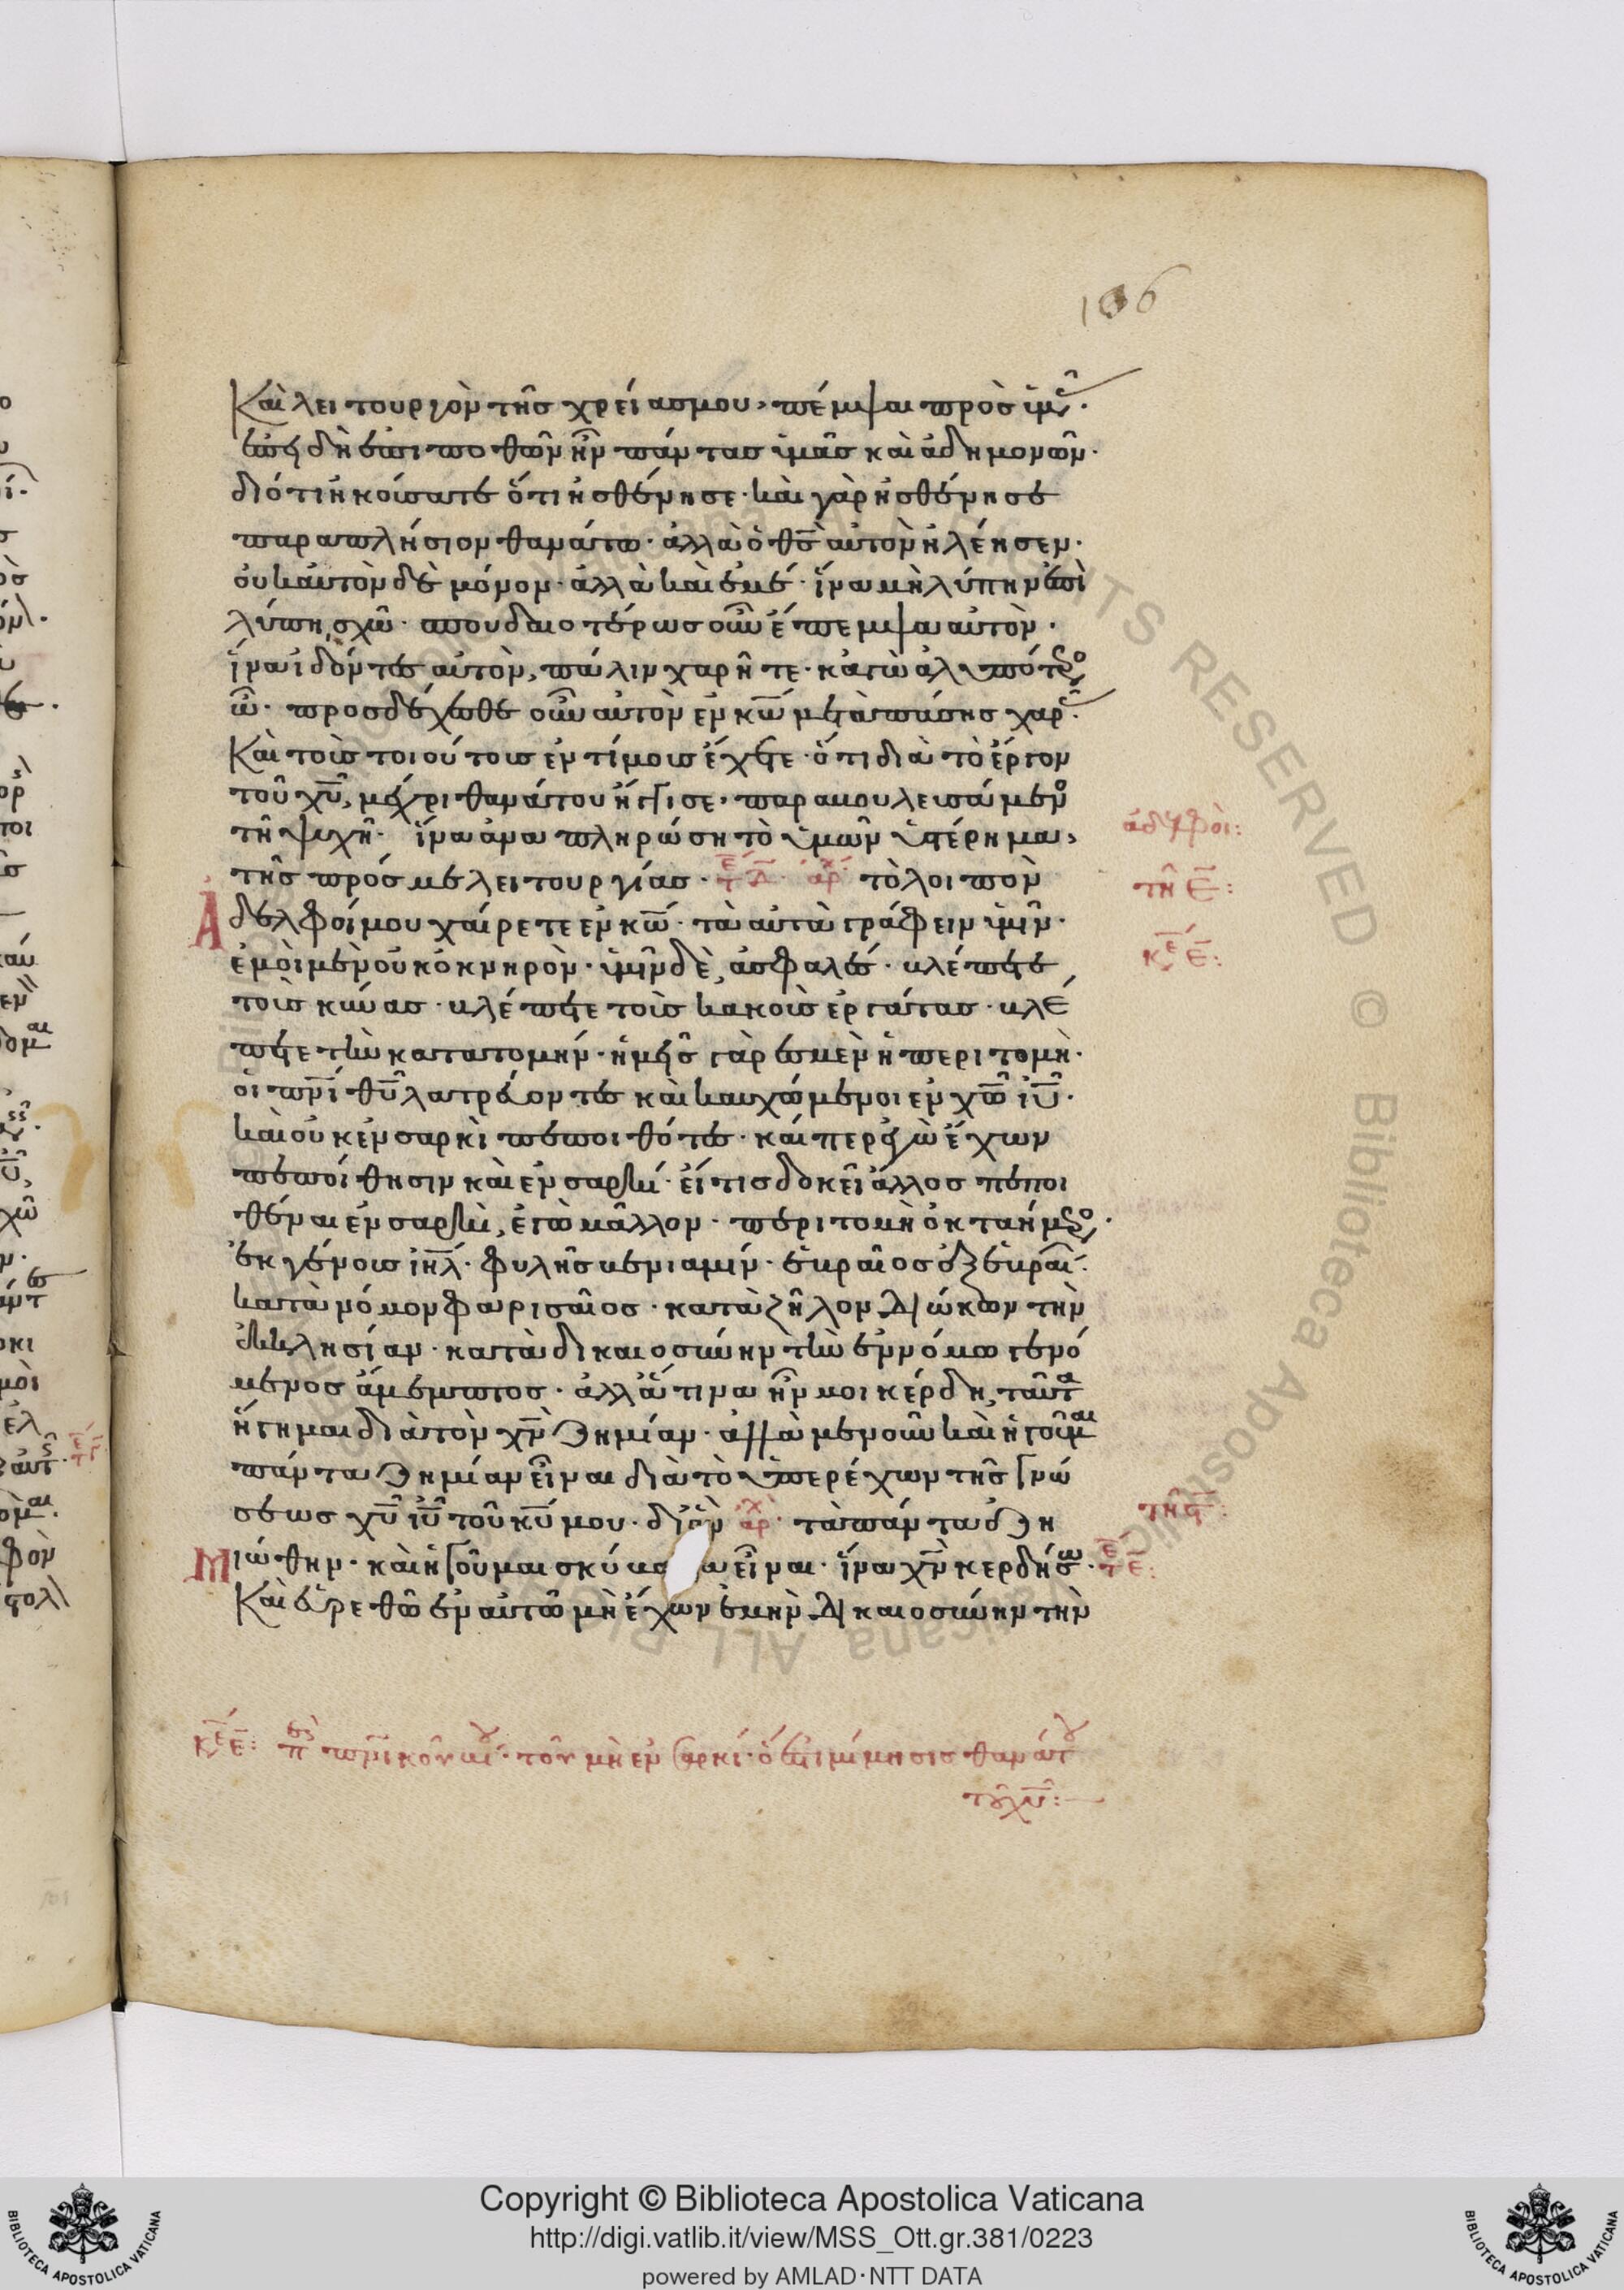 106
Καὶ λειτουργὸν τῆς χρείας μου, πέμψαι πρὸς ὑμᾶς·
ἐπειδὴ ἐπιποθῶν ἦν πάντας ὑμᾶς καὶ ἀδημονῶν·
διότι ἠκούσατε ὅτι ἠσθένησε· καὶ γὰρ ἠσθένησε
παραπλήσιον θανάτω· ἀλλὰ ὁ θς αὐτὸν ἠλέησεν·
οὐκ αὐτὸν δὲ μόνον· ἀλλὰ καὶ ἐμέ· ἵνα μὴ λύπην ἐπὶ
λύπη, σχῶ· σπουδαιοτέρως οὖν ἔπεμψα αὐτὸν·
ἵνα ἰδόντες αὐτὸν, πάλιν χαρῆτε· κἀγὼ ἀλυπότερο
ὦ· προσδέχεσθε οὖν αὐτὸν ἐν κω μετὰ πάσης χαρᾶς·
Καὶ τοὺς τοιούτους ἐντίμους ἔχετε· ὅτι διὰ τὸ ἔργον
τοῦ χυ, μέχρι θανάτου ἤγγισε, παραβουλευσάμενο
τῆ ψυχῆ· ἵνα ἀναπληρώση τὸ ὑμῶν ὑστέρημα,
τῆς πρός με λειτουργίας· τε δ· αρχ τὸ λοιπὸν
ἀδελφοί:
τῆ ε:
Ἀδελφοί μου χαίρετε ἐν κω· τὰ αὐτὰ γράφειν ὑμῖν·
κε ε:
ἐμοὶ μὲν οὐκ ὀκνηρὸν· ὑμῖν δὲ, ἀσφαλές· βλέπετε
τοὺς κύνας· βλέπετε τοὺς κακοὺς ἐργάτας· βλέ
πετε τὴν κατατομήν· ἡμεῖς γάρ ἐσμεν ἡ περιτομὴ·
οἱ πνι θυ λατρεύοντες καὶ καυχώμενοι ἐν χω ιυ·
καὶ οὐκ ἐν σαρκὶ πεποιθότες· καίπερ ἐγὼ ἔχων
πεποίθησιν καὶ ἐν σαρκί· εἴ τις δοκεῖ ἄλλος πεποι
θέναι ἐν σαρκὶ, ἐγὼ μᾶλλον· περιτομὴ ὀκταήμερο·
ἐκ γένους ιηλ· φυλῆς βενιαμίν· ἑβραῖος ἐξ ἑβραί·
κατὰ νόμον φαρισαῖος· κατὰ ζῆλον διώκων τὴν
ἐκκλησίαν· κατὰ δικαιοσύνην τὴν ἐν νόμω γενό
μενος ἄμεμπτος· ἀλλἅτινα ἦν μοι κέρδη, ταῦτα
ἥγημαι διὰ τὸν χν ζημίαν· ἀλλὰ μὲν οὖν καὶ ἡγοῦμαι
πάντα ζημίαν εἶναι διὰ τὸ ὑπερέχων τῆς γνώ
σεως χυ ιυ τοῦ κυ μου· δι ὃν αρχ τὰ πάντα ἐζη
τῆ ς:
Μιώθην· καὶ ἡγοῦμαι σκύβα α εἶναι· ἵνα χν κερδήσω· τε ε:
Καὶ εὑρεθῶ ἐν αὐτῶ μὴ ἔχων ἐμὴν δικαιοσύνην τὴν
κε ε: περὶ πνικοῦ βίου· τοῦ μὴ ἐν σαρκί· ὅ ἐστι μίμησις θανάτου
τοῦ χυ:
Copyright © Biblioteca Apostolica Vaticana
http://digi.vatlib.it/view/MSS_Ott.gr.381/0223
powered by AMLAD·NTT DATA
BIBLIOTECA APOSTOLICA VATICANA
BIBLIOTECA APOSTOLICA VATICANA